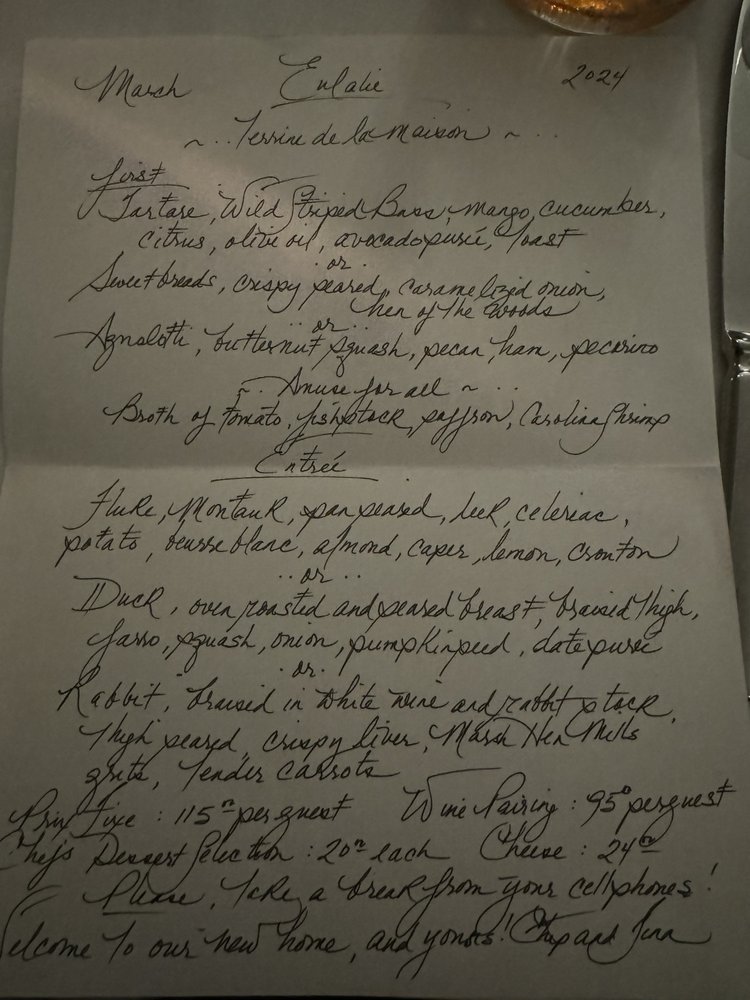 March Eulalie 2024
~ .. Terrine de la maison ~ ...
first
Tartare, Wild Striped Bass, mango, cucumber,
citrus, olive oil, avocado purée, toast
. or .
Sweetbreads, crispy seared, caramelized onion,
hen of the woods
.. or ..
Agnolotti, butternut squash, pecan, ham, pecorino
~ . Amuse for all ~ ...
Broth of tomato, fish stock, saffron, Carolina Shrimp
Entrée
Fluke, Montauk, pan seared, leek, celeriac,
potato, beurre blanc, almond, caper, lemon, crouton
.. or ..
Duck, oven roasted and seared breast, braised thigh,
farro, squash, onion, pumpkinseed, date purée
. or .
Rabbit, braised in white wine and rabbit stock,
thigh seared, crispy liver, Marsh Hen Mills
grits, tender carrots
Prix Fixe : 115 per guest Wine Pairing : 95 per guest
Chefs Dessert Selection : 20 each Cheese : 24
Please, take a break from your cellphones!
Welcome to our new home, and yours! Chip and Tina